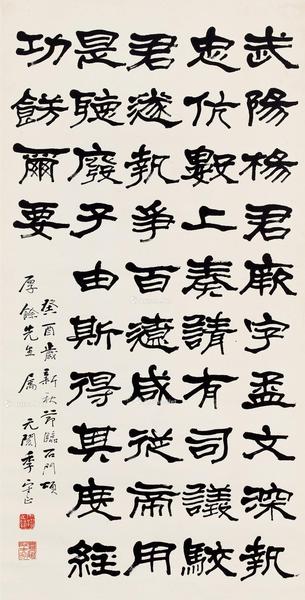 武陽楊君厥字孟文深執
忠伉數上奏請有司議駮
君遂執爭百遼咸從帝用
是聽廢子由斯得其度經
功飭爾要
癸酉歲新秋節臨石門頌
厚餘先生屬 季守正